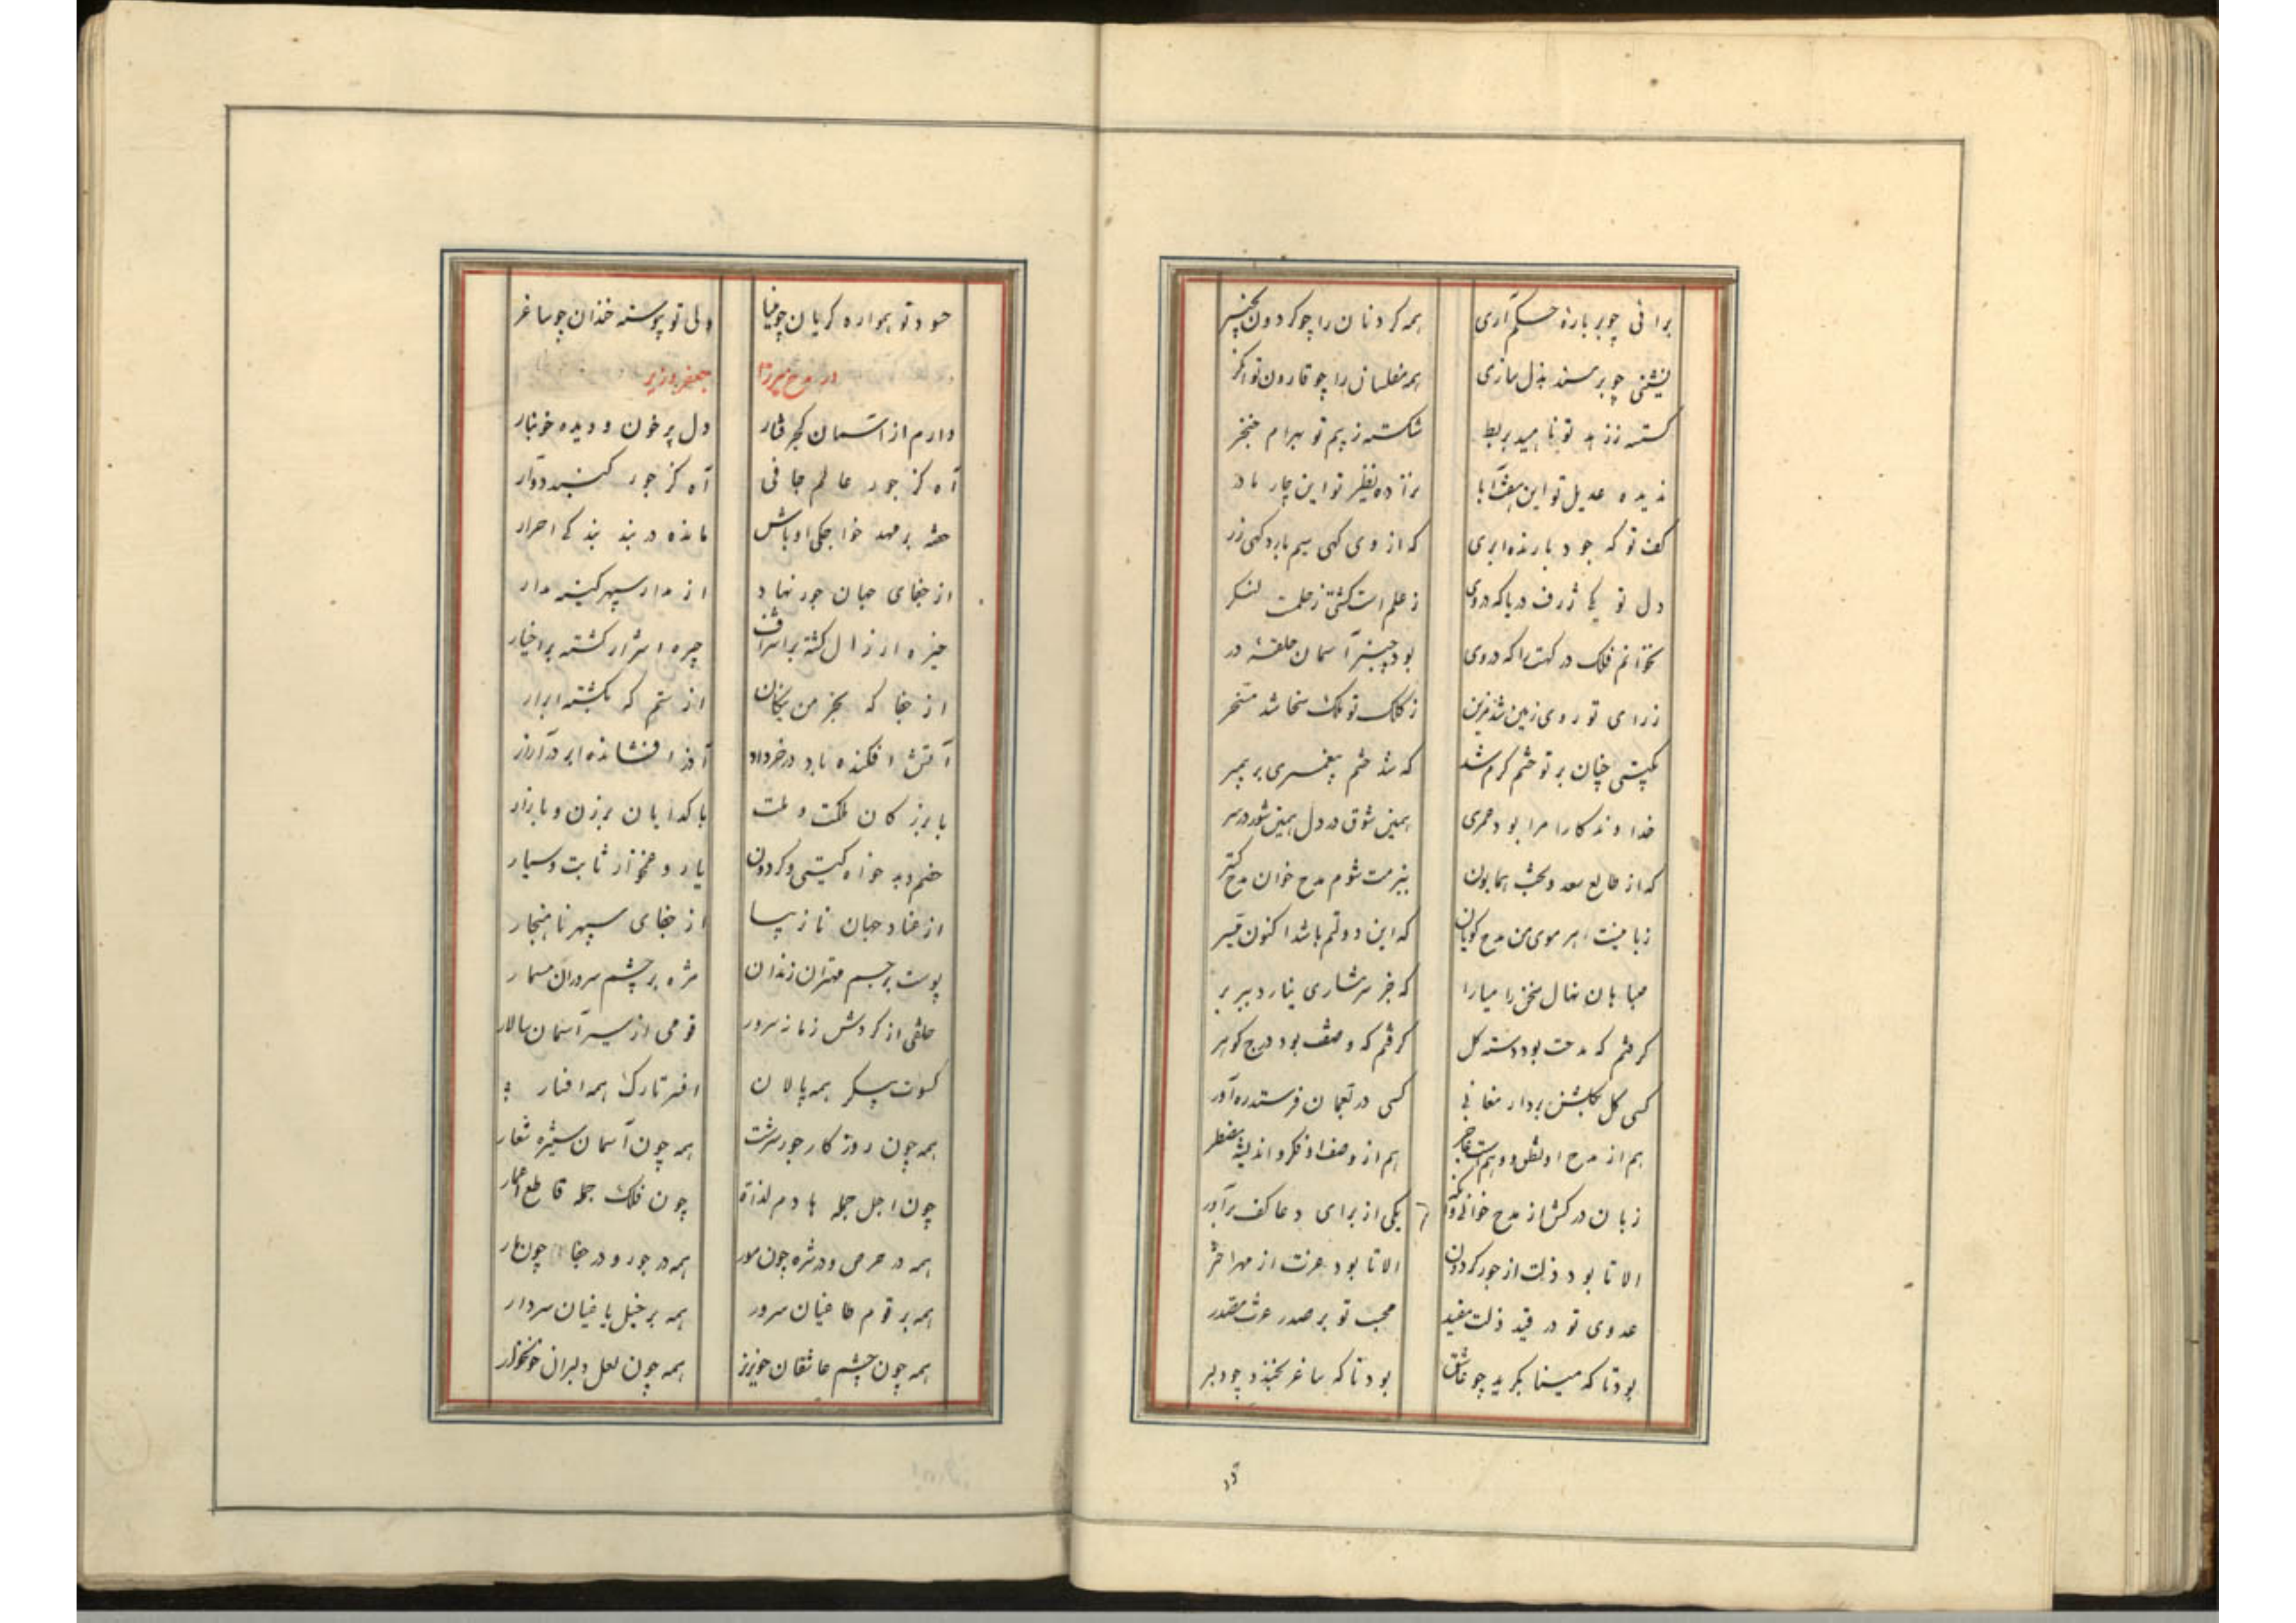 برانی چو بر باره حکم آری همه گردنان را چو گردون بچنبر
نشینی چو بر مسند بذل سازی همه مفلسان را چو قارون توانگر
گسسته ز زهد تو ناهید بربط شکسته ز بیم تو بهرام خنجر
ندیده عدیل تو این هفت آبا نزاده نظیر تو این چار مادر
کف تو که جود بارنده ابری که از وی گهی سیم بارد گهی زر
دل تو یکی ژرف دریا که در وی ز علم است کشتی ز حلمت لنگر
نخوانم فلک درگهت را که در وی بود چنبر آسمان حلقه در
ز رای تو روی زمین شد مزین ز کلک تو ملک سخا شد مسخر
بگیتی چنان بر تو ختم کرم شد که شد ختم پیغمبری بر پیمبر
خداوندکارا مرا بود عمری همین شوق در دل همین شور در سر
که از طالع سعد و بخت همایون ببزمت شوم مدح خوان مدح گستر
زبانیست هر موی من مدح گویان که این دولتم باشد اکنون میسر
صباها نهال سخن را میارا که جز شرمساری نیارد ببر بر
گرفتم که مدحت بود دسته گل گرفتم که وصفت بود درج گوهر
کسی گل بگلشن برد ارمغانی کسی در بعمان فرستد ره آور
هم از مدح او نطق و وهم است عاجز هم از وصف او فکر و اندیشه مضطر
زبان درکش از مدح خوانی و یکی از برای دعا کف برآور
الا تا بود ذلت از جور گردون الا تا بود عزت از مهر اختر
عدوی تو در قید ذلت مقید محب تو بر صدر عزت مصدر
بود تا که مینا بگرید چو عاشق بود تا که ساغر بخندد چو دلبر
حسود تو همواره گریان چو مینا ولی تو پیوسته خندان چو ساغر
در مدح میرزا جعفر وزیر
دارم از آسمان کجرفتار دل پر خون و دیده خونبار
آه کز جور عالم جافی آه کز جور گنبد دوار
خفته بر مهد خواجگی اوباش مانده در بند بندگی احرار
از جفای جهان جور نهاد از مدار سپهر کینه مدار
خیره ارذال گشته بر اشراف چیره اشرار گشته بر اخیار
از جفا که بجز من نیکان از ستم که بکشته ابرار
آتش افکنده باد در خرداد آذر افشانده ابر در آزار
با بزرگان ملکت و ملت با گدایان برزن و بازار
خصم و بدخواه گیتی و گردون یار و غمخوار ثابت و سیار
از عناد جهان نازیبا از جفای سپهر ناهنجار
پوست بر جسم مهتران زندان مژه بر چشم سروران مسمار
خلقی از گردش زمانه سرور قومی از سیر آسمان سالار
کسوت پیکر همه پالان افسر تارک همه افسار
همه چون روزگار جور سرشت همه چون آسمان ستیزه شعار
چون اجل جمله هادم لذات چون فلک جمله قاطع اعمار
همه در حرص و در شره چون مور همه در جور و در جفا چون مار
همه بر قوم طاغیان سرور همه بر خیل یاغیان سردار
همه چون چشم عاشقان خونریز همه چون لعل دلبران خونخوار